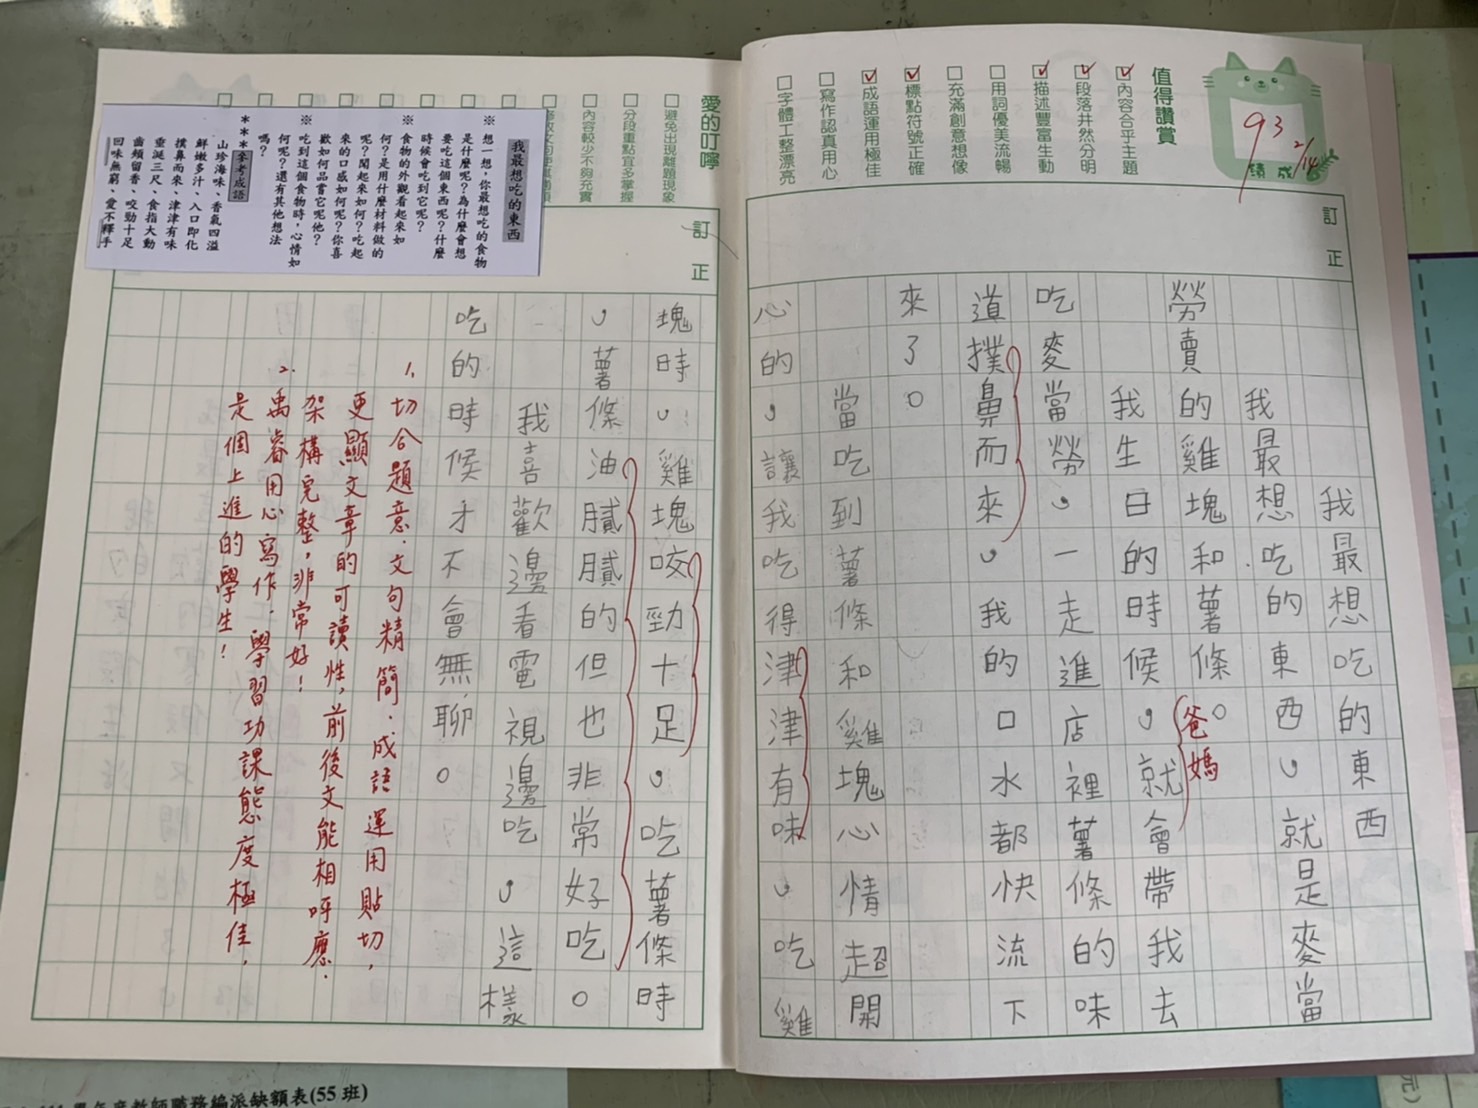 值得讚賞
☑內容合乎主題
☑段落井然分明
☑描述豐富生動
□用詞優美流暢
□充滿創意想像
☑標點符號正確
☑成語運用極佳
□寫作認真用心
□字體工整漂亮
93
2/14
成績
訂正
我最想吃的東西
我最想吃的東西，就是麥當
勞賣的雞塊和薯條。
爸媽
我生日的時候，就會帶我去
吃麥當勞，一走進店裡薯條的味
道撲鼻而來，我的口水都快流下
來了。
當吃到薯條和雞塊心情超開
心的，讓我吃得津津有味，吃雞
塊時，雞塊咬勁十足，吃薯條時
，薯條油膩膩的但也非常好吃。
我喜歡邊看電視邊吃，這樣
吃的時候才不會無聊。
愛的叮嚀
□避免出現離題現象
□分段重點宜多掌握
□內容較少不夠充實
訂正
我最想吃的東西
※想一想，你最想吃的食物
是什麼呢？為什麼會想
要吃這個東西呢？什麼
時候會吃到它呢？
※食物的外觀看起來如
何？是用什麼材料做的
呢？聞起來如何？吃起
來的口感如何呢？你喜
歡如何品嘗它呢他？
※吃到這個食物時，心情如
何呢？還有其他想法
嗎？
***參考成語
山珍海味、香氣四溢
鮮嫩多汁、入口即化
撲鼻而來、津津有味
垂涎三尺、食指大動
齒頰留香、咬勁十足
回味無窮、愛不釋手
1.切合題意．文句精簡．成語運用貼切，
更顯文章的可讀性，前後文能相呼應．
架構完整，非常好！
2.禹睿用心寫作．學習功課態度極佳，
是個上進的學生！
學年度教師職務編派缺額表(55班)
元)